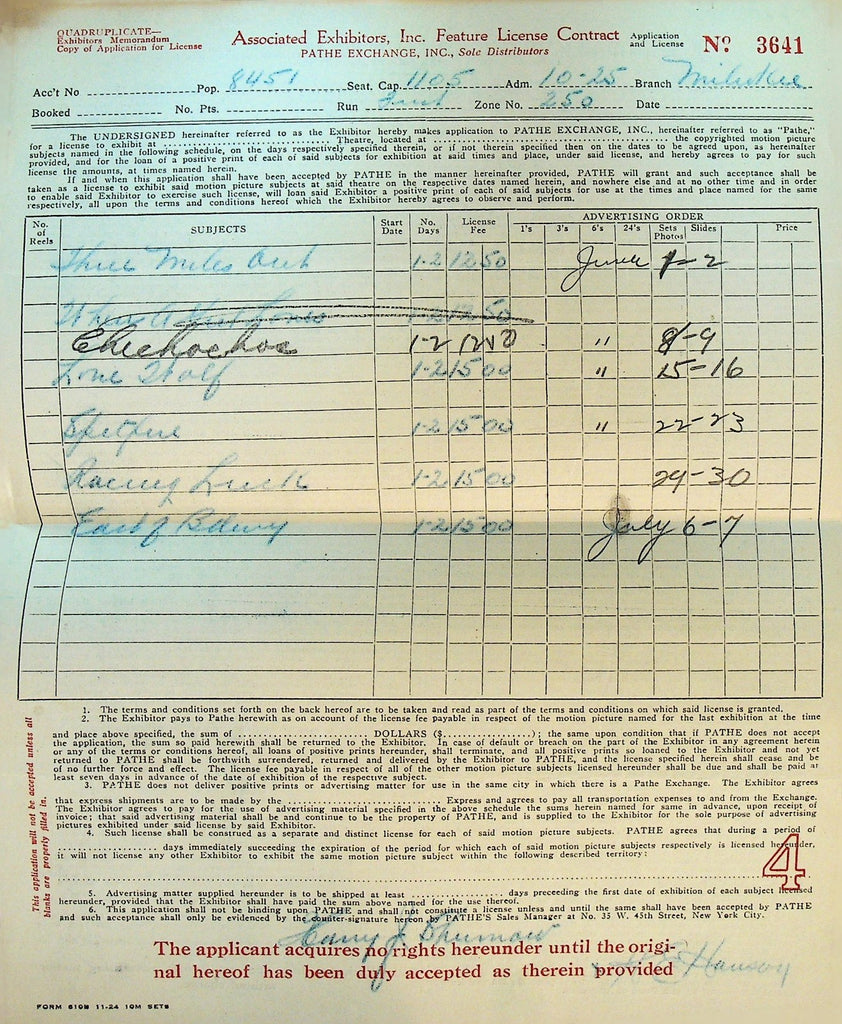 QUADRUPLICATE—
Exhibitors Memorandum
Copy of Application for License
Associated Exhibitors, Inc. Feature License Contract
PATHE EXCHANGE, INC., Sole Distributors
Application
and License
No 3641
Acc't No Pop. 8451 Seat. Cap. 1105 Adm. 10-25 Branch Milwkee
Booked No. Pts. Run First Zone No. 250 Date
The UNDERSIGNED hereinafter referred to as the Exhibitor hereby makes application to PATHE EXCHANGE, INC., hereinafter referred to as "Pathe,"
for a license to exhibit at Theatre, located at the copyrighted motion picture
subjects named in the following schedule, on the days respectively specified therein, or if not therein specified then on the dates to be agreed upon, as hereinafter
provided, and for the loan of a positive print of each of said subjects for exhibition at said times and place, under said license, and hereby agrees to pay for such
license the amounts, at times named herein.
If and when this application shall have been accepted by PATHE in the manner hereinafter provided, PATHE will grant and such acceptance shall be
taken as a license to exhibit said motion picture subjects at said theatre on the respective dates named herein, and nowhere else and at no other time and in order
to enable said Exhibitor to exercise such license, will loan said Exhibitor a positive print of each of said subjects for use at the times and place named for the same
respectively, all upon the terms and conditions hereof which the Exhibitor hereby agrees to observe and perform.
No. of Reels SUBJECTS Start Date No. Days License Fee ADVERTISING ORDER 1's 3's 6's 24's Sets Photos Slides Price
Three Miles Out 1-2 12.50 June 1-2
1-2 12.50
Chechacos 1-2 12.50 " 8-9
Lone Wolf 1-2 15 00 " 15-16
Spitfire 1-2 15 00 " 22-23
Racing Luck 1-2 15 00 29-30
East of Bdway 1-2 15 00 July 6-7
1. The terms and conditions set forth on the back hereof are to be taken and read as part of the terms and conditions on which said license is granted.
2. The Exhibitor pays to Pathe herewith as on account of the license fee payable in respect of the motion picture named for the last exhibition at the time
and place above specified, the sum of DOLLARS ($ ); the same upon condition that if PATHE does not accept
the application, the sum so paid herewith shall be returned to the Exhibitor. In case of default or breach on the part of the Exhibitor in any agreement herein
or any of the terms or conditions hereof, all loans of positive prints hereunder, shall terminate, and all positive prints so loaned to the Exhibitor and not yet
returned to PATHE shall be forthwith surrendered, returned and delivered by the Exhibitor to PATHE, and the license specified herein shall cease and be
of no further force and effect. The license fee payable in respect of all of the other motion picture subjects licensed hereunder shall be due and shall be paid at
least seven days in advance of the date of exhibition of the respective subject.
3. PATHE does not deliver positive prints or advertising matter for use in the same city in which there is a Pathe Exchange. The Exhibitor agrees
that express shipments are to be made by the Express and agrees to pay all transportation expenses to and from the Exchange.
The Exhibitor agrees to pay for the use of advertising material specified in the above schedule the sums herein named for same in advance, upon receipt of
invoice; that said advertising material shall be and continue to be the property of PATHE, and is supplied to the Exhibitor for the sole purpose of advertising
pictures exhibited under said license by said Exhibitor.
4. Such license shall be construed as a separate and distinct license for each of said motion picture subjects. PATHE agrees that during a period of
days immediately succeeding the expiration of the period for which each of said motion pictures respectively is licensed hereunder,
it will not license any other Exhibitor to exhibit the same motion picture subject within the following described territory:
4
5. Advertising matter supplied hereunder is to be shipped at least days preceeding the first date of exhibition of each subject licensed
hereunder, provided that the Exhibitor shall have paid the sum above named for the use thereof.
6. This application shall not be binding upon PATHE and shall not constitute a license unless and until the same shall have been accepted by PATHE
and such acceptance shall only be evidenced by the counter-signature hereon by PATHE'S Sales Manager at No. 35 W. 45th Street, New York City.
The applicant acquires no rights hereunder until the origi-
nal hereof has been duly accepted as therein provided
Hanson
This application will not be accepted unless all
blanks are properly filled in.
FORM 610B 11-24 10M SETS